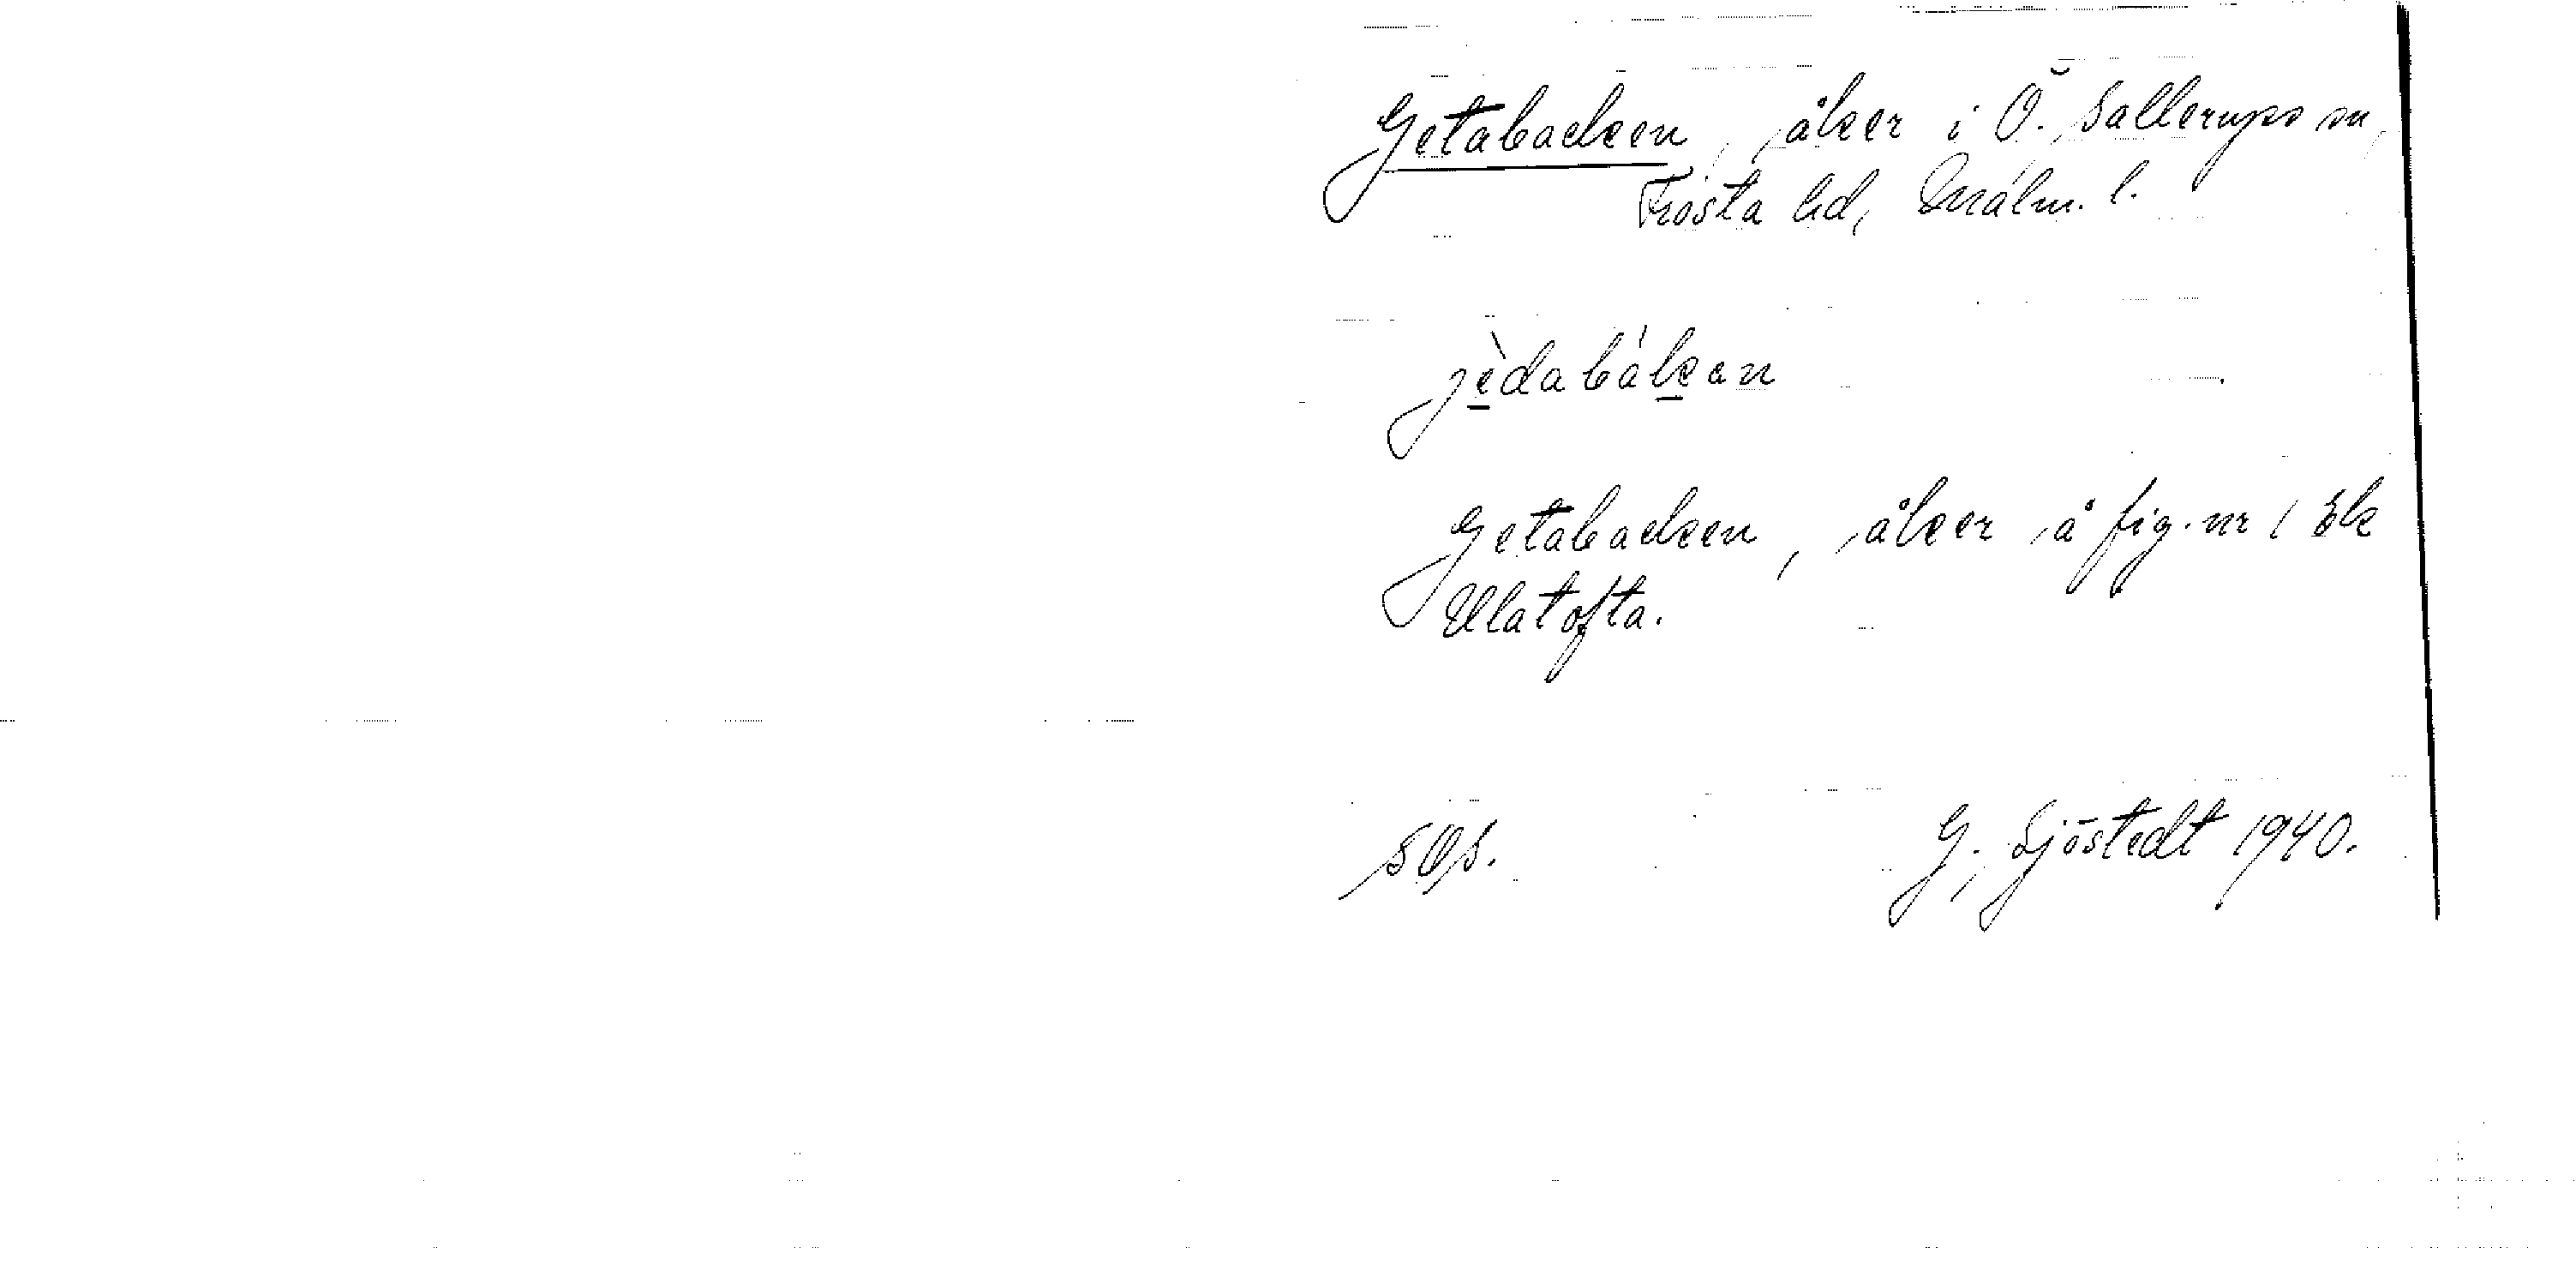 Getabacken, åker i Ö. Sallerups sn,
Frosta hd, Malm. l.
jèdabákan
Getabacken, åker å fig. nr 1 Ek
Ullatofta.
SOS.
G. Sjöstedt 1940.